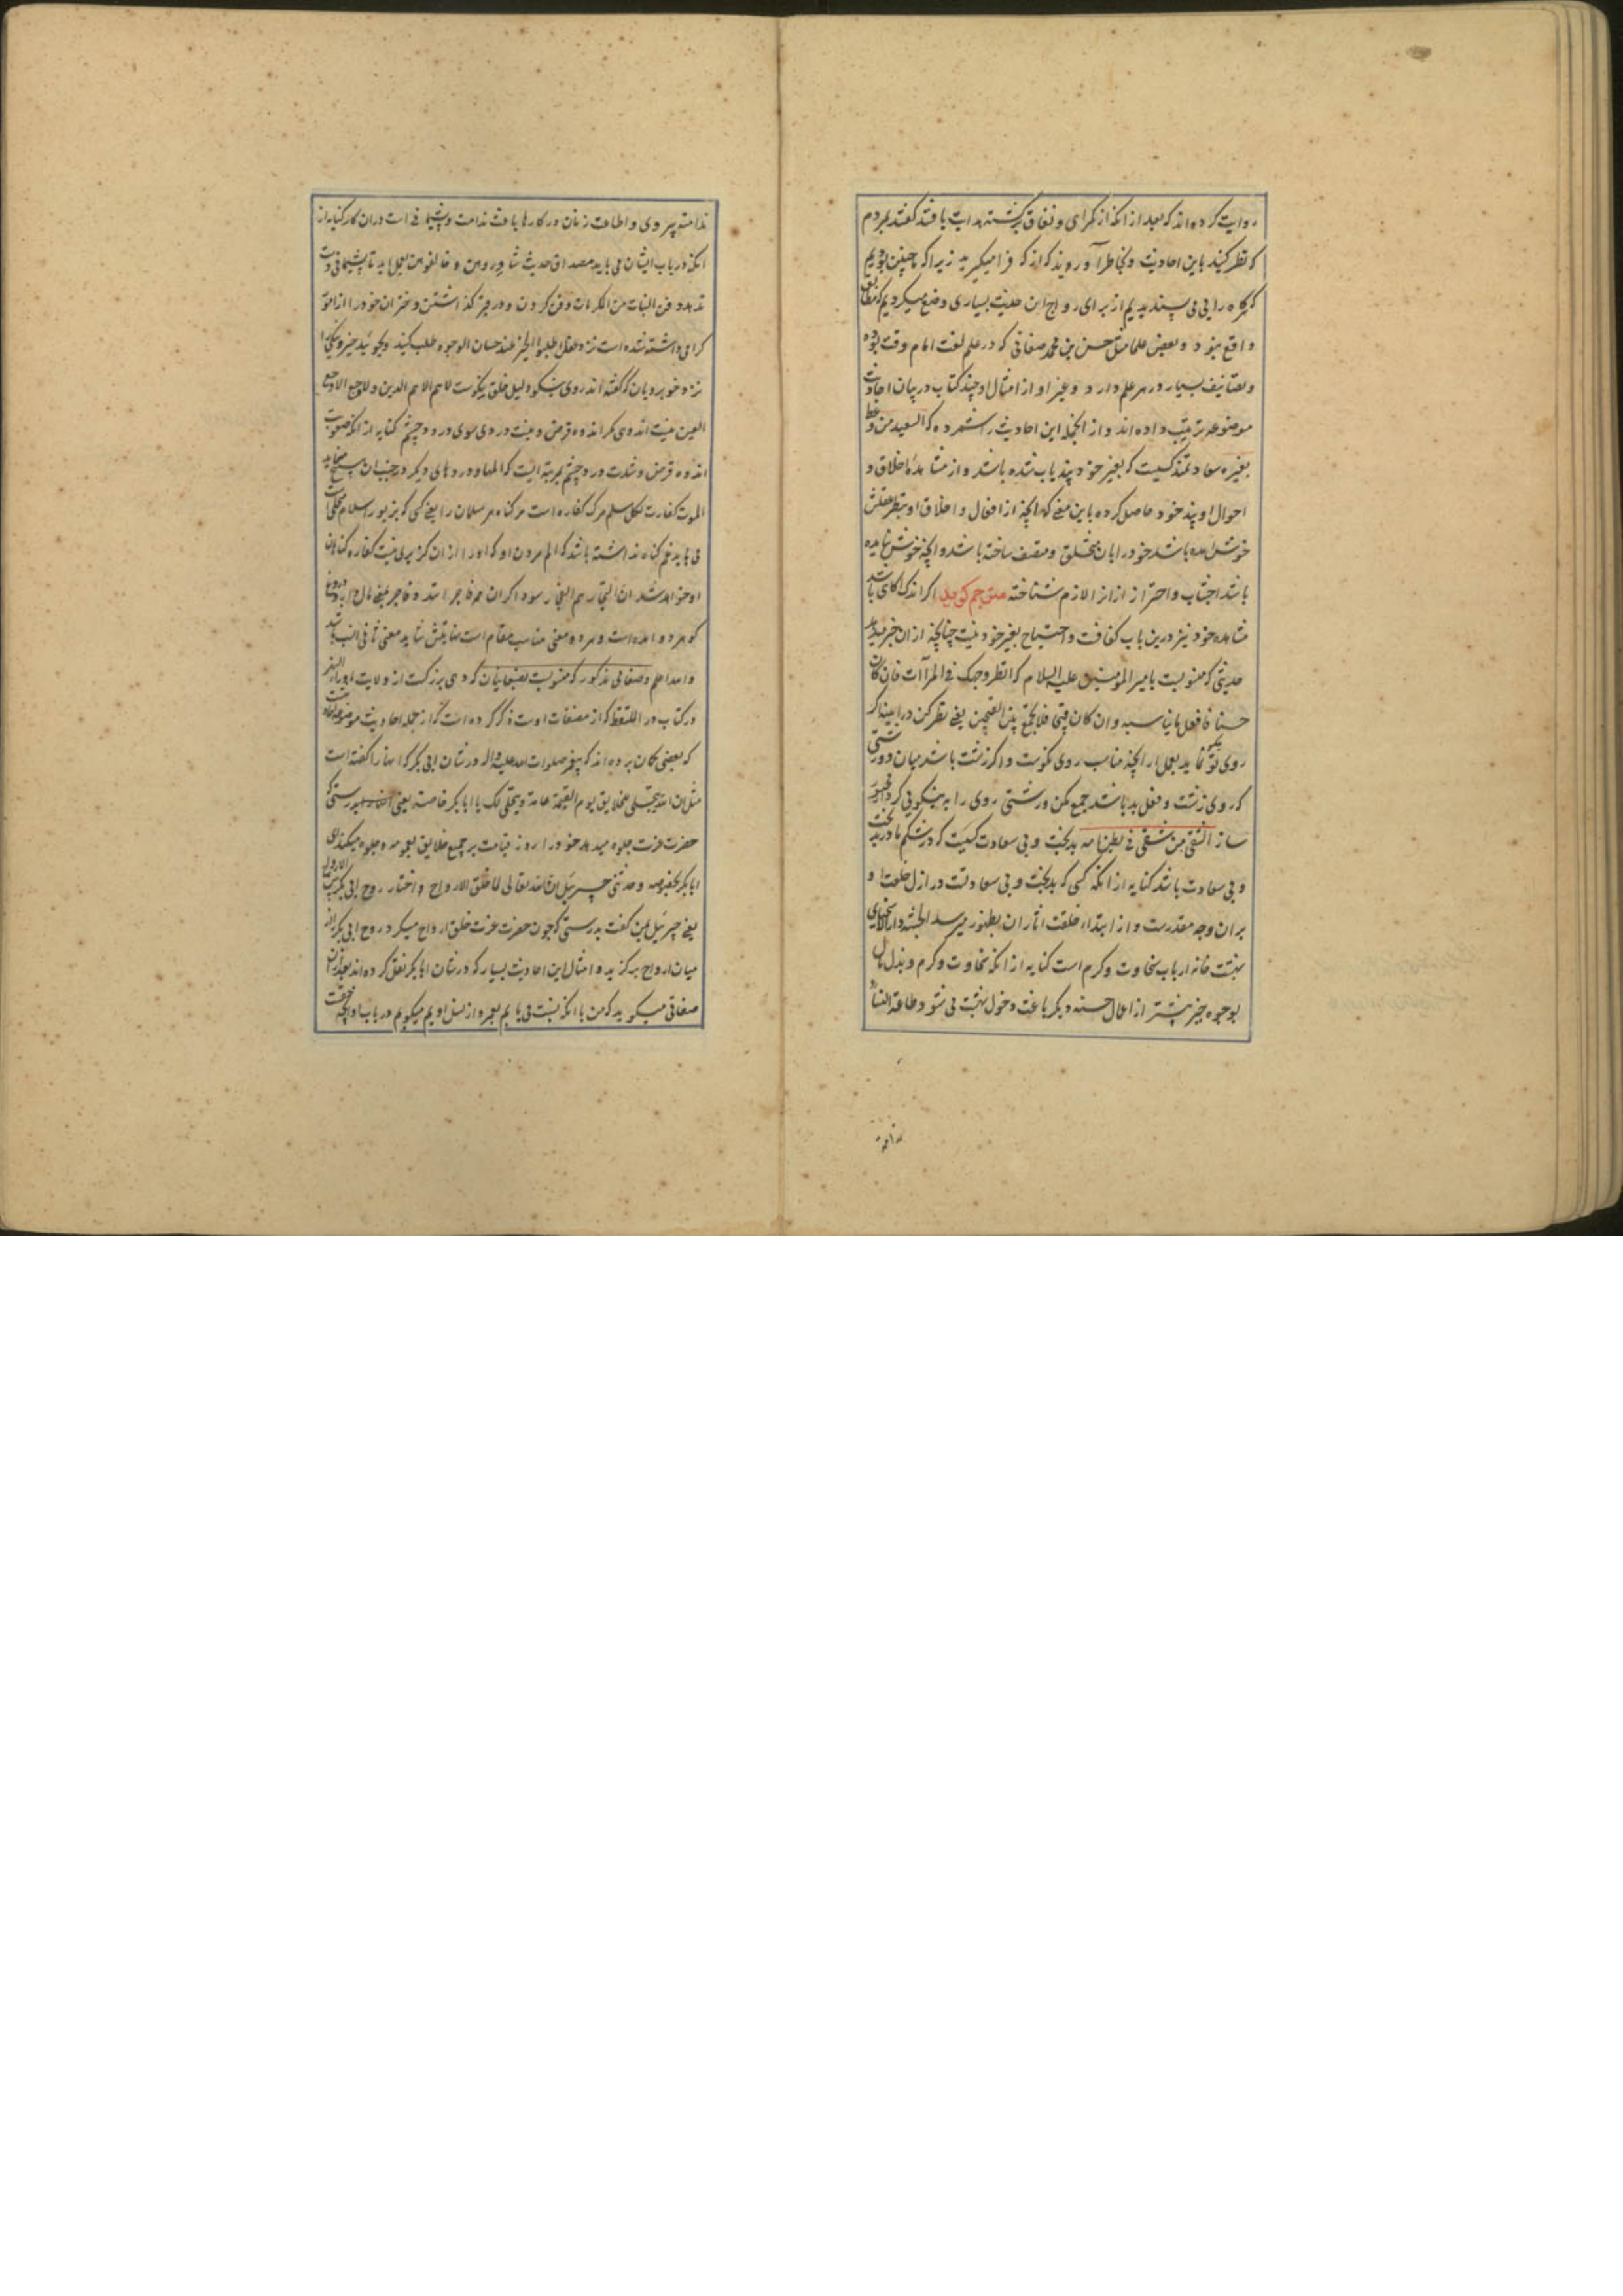 روایت کرده‌اند که بعد از آنکه از گمراهی و نفاق برگشته هدایت یافتند گفتند بمردم
که نظر کنید باین احادیث و بخاطر آورید که از که فرا میگیرید زیرا که ما چنین بودیم
که هرگاه رایی می پسندیدیم از برای رواج آن حدیث بسیاری وضع میکردیم که مطابق
واقع نبود و بعضی علما مثل حسن بن محمد صغانی که در علم لغت امام وقت بوده
و تصانیف بسیار در هر علم دارد و غیر او از امثال او چند کتاب در بیان احادیث
موضوعه ترتیب داده‌اند و از آنجمله این احادیث را شمرده که السعید من وعظ
بغیره سعادتمند کسیست که بغیر خود پند یاب شده باشد و از مشاهده اخلاق و
احوال او پند خود حاصل کرده باین معنی که آنچه از افعال و اخلاق او بنظر عقلش
خوش آمده باشد خود را بآن متخلق و متصف ساخته باشد و آنچه خوش نیامده
باشد اجتناب و احتراز از آنرا لازم شناخته اگر اندک آگاهی باشد
مشاهده خود نیز درین باب کافیست و احتیاج بغیر خود نیست چنانچه از آن خبر میدهد
حدیثی که منسوبست بامیر المؤمنین علیه السلام که انظر وجهک فی المرآت فان کان
حسنا فافعل ما یناسبه و ان کان قبیحا فلا تجمع بین القبیحین یعنی نظر کن در آیینه اگر
روی تو نیکو نماید بعمل آر آنچه مناسب روی نکوست و اگر زشت باشد میان دو زشتی
که روی زشت و فعل بد باشد جمع مکن و زشتی روی را به نیکویی کردار مجبور
ساز الشقی من شقی فی بطن امه بدبخت و بی سعادت کسیست که در شکم مادر بدبخت
و بی سعادت باشد کنایه از آنکه کسی که بدبخت و بی سعادتست در ازل خلقت او
بر آن وجه مقدرست و از ابتداء خلقت آثار آن بظهور میرسد الجنة دار الاسخیاء
بهشت خانه ارباب سخاوت و کرم است کنایه از آنکه سخاوت و کرم و بذل مال
بوجوه خیر بیشتر از اعمال حسنه دیگر باعث دخول بهشت می شود طاعة النساء
ندامة
ندامة پیروی و اطاعت زنان در کارها باعث ندامت و پشیمانی است در آن کار کنایه از
آنکه در باب ایشان می باید مصداق حدیث شاوروهن و خالفوهن بعمل آید تا پشیمانی دست
ندهد دفن البنات من المکرمات دفن کردن و در قبر گذاشتن دختران خود را از امور
گرامی داشته شده است نزد عقل اطلبوا الخیر عند حسان الوجوه طلب کنید و بجویید خیر و نیکی را
نزد خوبرویان که گفته‌اند روی نیکو دلیل خلق نیکوست لا هم الا هم الدین و لا وجع الا وجع
العین نیست اندوهی مگر اندوه قرض و نیست دردی سوای درد چشم کنایه از آنکه صعوبت
اندوه قرض و شدت درد چشم بمرتبه ایست که المها و دردهای دیگر در جنب آن سهل مینماید
الموت کفارة لکل مسلم مرگ کفاره است مر گناه هر مسلمان را یعنی کسی که بزیور اسلام محلی است
می باید غم گناه نداشته باشد که الم مردن او که او را از آن گزیری نیست کفاره گناهان
او خواهد شد ان التجار هم الفجار سوداگران همه فاجراند و فاجر بمعنی مال دار و دروغ
گو هر دو آمده است و هر دو معنی مناسب مقام است نهایتش شاید معنی ثانی انسب باشد
والله اعلم و صغانی مذکور که منسوبست بصغانیان که دهی بزرگست از ولایت ماوراءالنهر
در کتاب در الملتقط که از مصنفات اوست ذکر کرده است که از جمله احادیث موضوعه
که بعضی گمان برده‌اند که پیغمبر صلوات الله علیه و آله در شان ابی بکر آنها را گفته است
مثل ان الله یتجلی للخلایق یوم القیمة عامة و یتجلی لک یا ابابکر خاصة یعنی بدرستی که
حضرت عزت جلوه میدهد خود را روز قیامت بر جمیع خلایق بعموم و جلوه میکند برای
ابابکر بخصوصه و حدثنی جبرئیل ان الله تعالی لما خلق الارواح و اختار روح ابی بکر من بین الارواح
یعنی جبرئیل بمن گفت بدرستی که چون حضرت عزت خلق ارواح میکرد روح ابی بکر را از
میان ارواح برگزید و امثال این احادیث بسیار که در شان ابابکر نقل کرده‌اند بعد از آن
صغانی میگوید که من با آنکه نسبت می یابم بعمر و از نسل اویم میگویم در باب او آنچه حقست